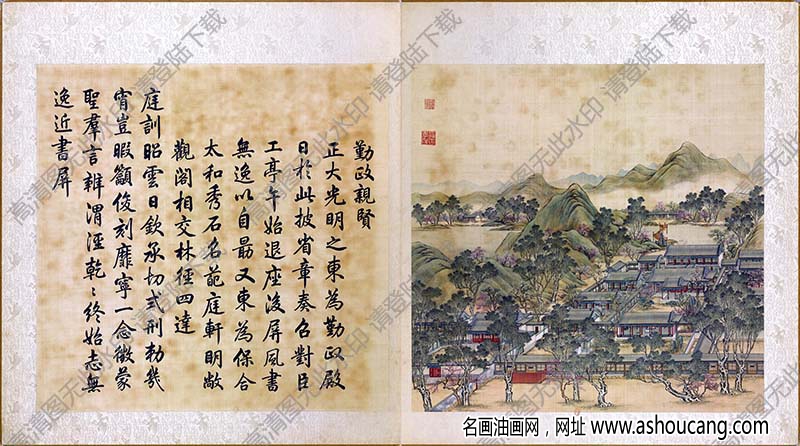 勤政親賢
正大光明之東為勤政殿
日於此披省章奏召對臣
工亭午始退座後屏風書
無逸以自勗又東為保合
太和秀石名葩庭軒明敞
觀閣相交林徑四達
庭訓昭雲日欽承切式刑勅幾
宵豈暇籲俊刻靡寧一念徵蒙
聖羣言辨渭涇乾〻終始志無
逸近書屏
高清图无此水印 请登陆下载
名画油画网，网址 www.ashoucang.com